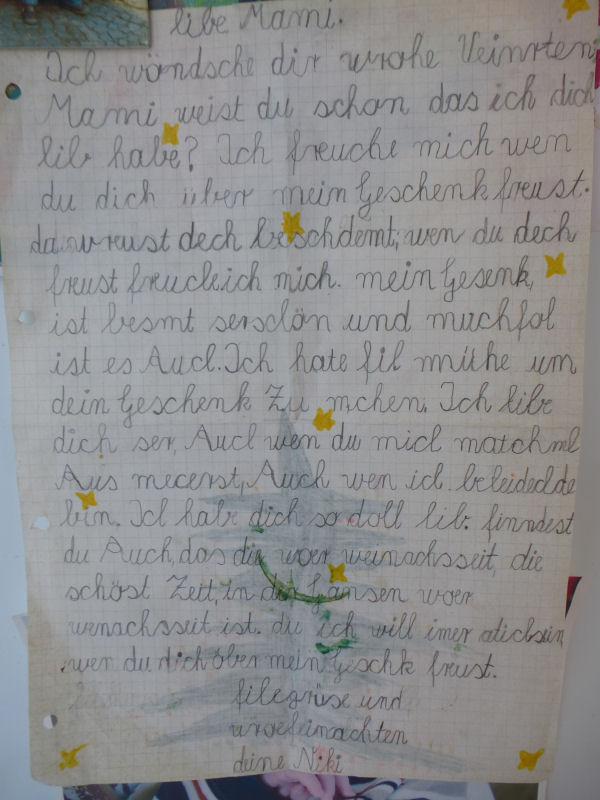 libe Mami.
Ich wöndsche dir wrohe Veinrten
Mami weist du schon das ich dich
lib habe? Ich freuche mich wen
du dich über mein Geschenk freust.
da wreust dech beschdemt, wen du dech
freust freucleich mich. mein Gesenk,
ist besmt serschön und muchfol
ist es Aucl. Ich hate fil mühe um
dein Geschenk Zu mchen. Ich libe
dich ser, Aucl wen du micl matchml
Aus mecerst, Auch wen icl beleidedde
bin. Icl habe dich so doll lib. finndest
du Auch, das die woer weinachsseit, die
schöst Zeit, in der Gansen woer
wenachsseit ist. du ich will imer
wen du dich über mein Geschk freust.
filegrüse und
deine Niki